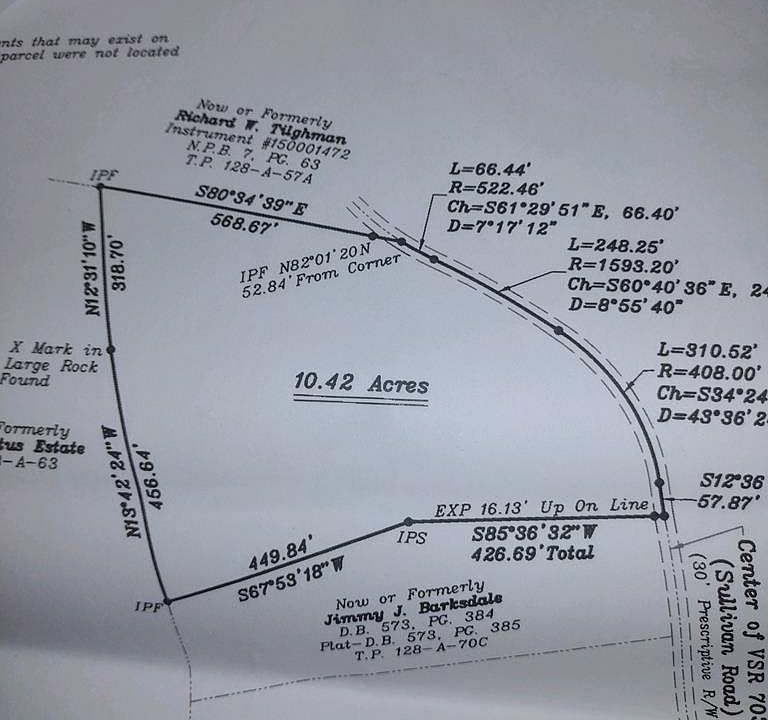 nts that may exist on
parcel were not located
Now or Formerly
Richard W. Tilghman
Instrument #150001472
N.P.B. 7, PG. 63
T.P. 128-A-57A
IPF
S80°34'39"E
568.67'
IPF N82°01'20N
52.84' From Corner
L=66.44'
R=522.46'
Ch=S61°29'51"E, 66.40'
D=7°17'12"
L=248.25'
R=1593.20'
Ch=S60°40'36"E, 24
D=8°55'40"
N12°31'10"W
318.70'
X Mark in
Large Rock
Found
10.42 Acres
L=310.52'
R=408.00'
Ch=S34°24
D=43°36'2
ormerly
tus Estate
-A-63
N13°42'24"W
456.64'
S12°36
57.87'
EXP 16.13' Up On Line
IPS
S85°36'32"W
426.69'Total
449.84'
S67°53'18"W
IPF
Now or Formerly
Jimmy J. Barksdale
D.B. 573, PG. 384
Plat-D.B. 573, PG. 385
T.P. 128-A-70C
Center of VSR 70
(Sullivan Road)
(30' Prescriptive R/W